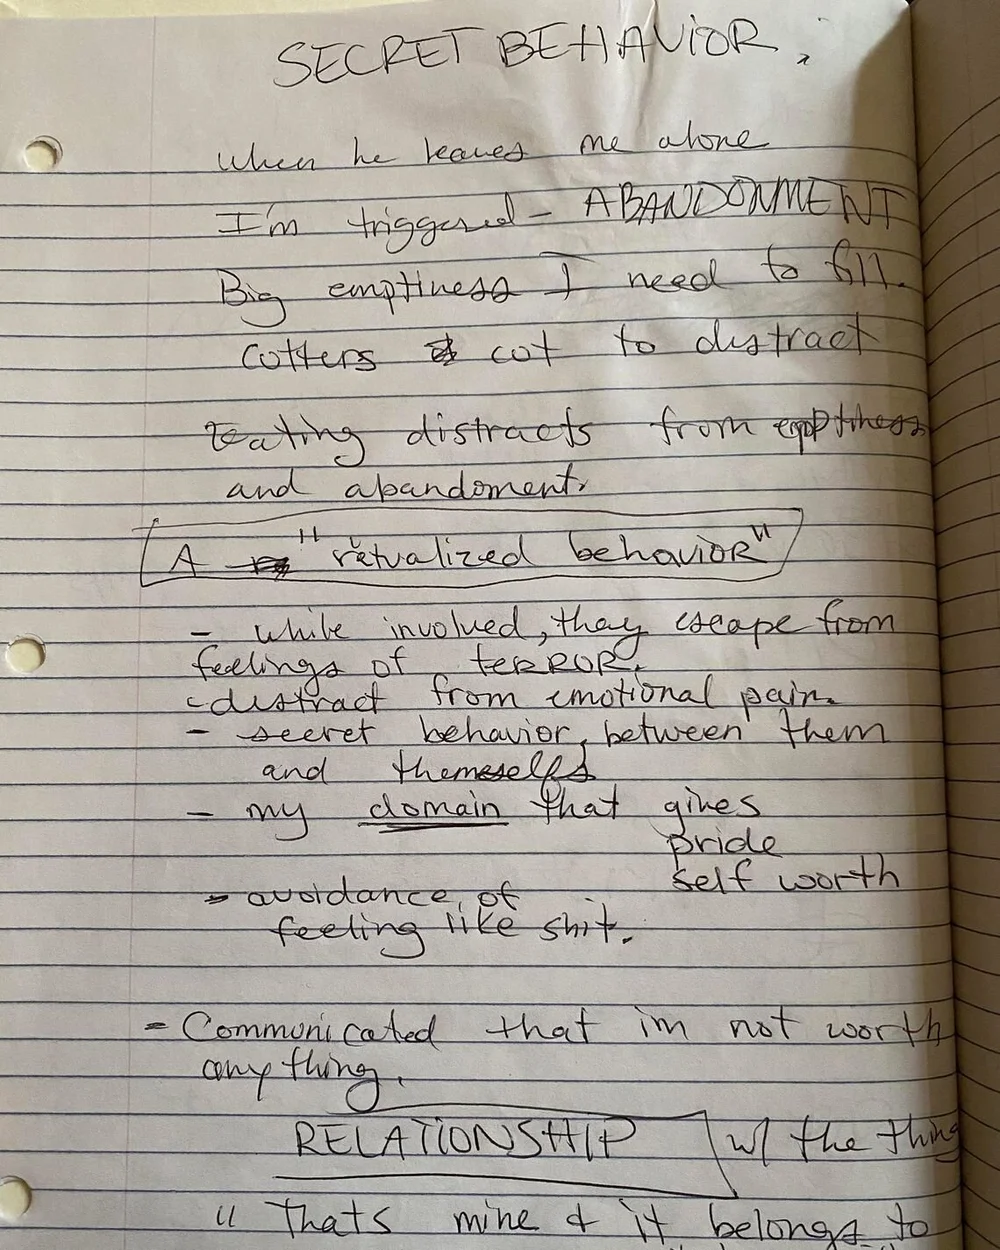 SECRET BEHAVIOR.
when he leaves me alone
I'm triggered - ABANDONMENT
Big emptiness I need to fill.
Cutters cut to distract
Eating distracts from emptiness
and abandoment.
A "ritualized behavioR"
- while involved, they escape from
feelings of teRROR.
- distract from emotional pain.
- secret behavior, between them
and themselfs
- my domain that gives
pride
self worth
- avoidance of
feeling like shit.
- Communicated that im not worth
anything.
RELATIONSHIP w/ the thing
" thats mine & it belongs to